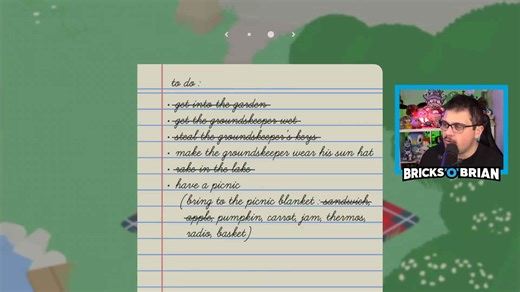 to do :
• get into the garden
• get the groundskeeper wet
• steal the groundskeeper's keys
• make the groundskeeper wear his sun hat
• rake in the lake
• have a picnic
(bring to the picnic blanket : sandwich,
apple, pumpkin, carrot, jam, thermos,
radio, basket)
BRICKS'O'BRIAN